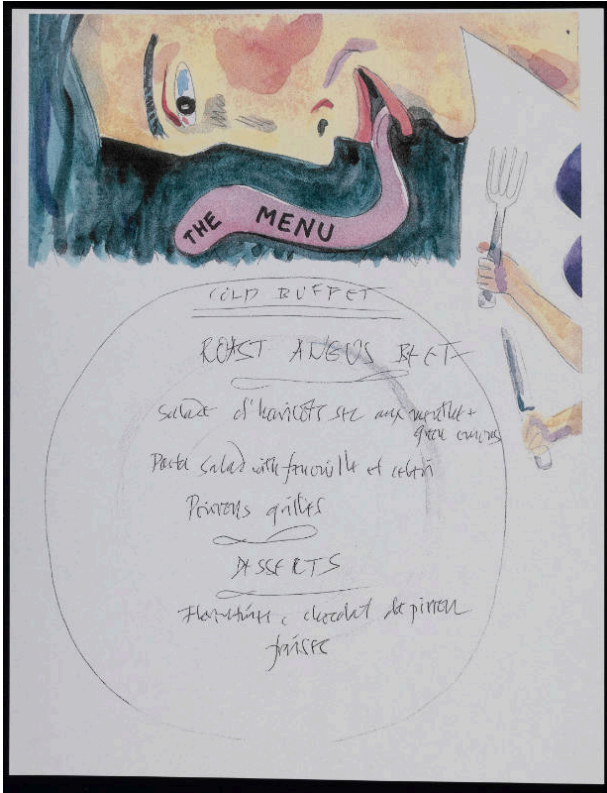 THE MENU
COLD BUFFET
ROAST ANGUS BEEF
Salade d'haricots sec aux +
green
Pasta Salad with fenouille et celeri
Poivrons grillés
DESSERTS
chocolat de
fraises